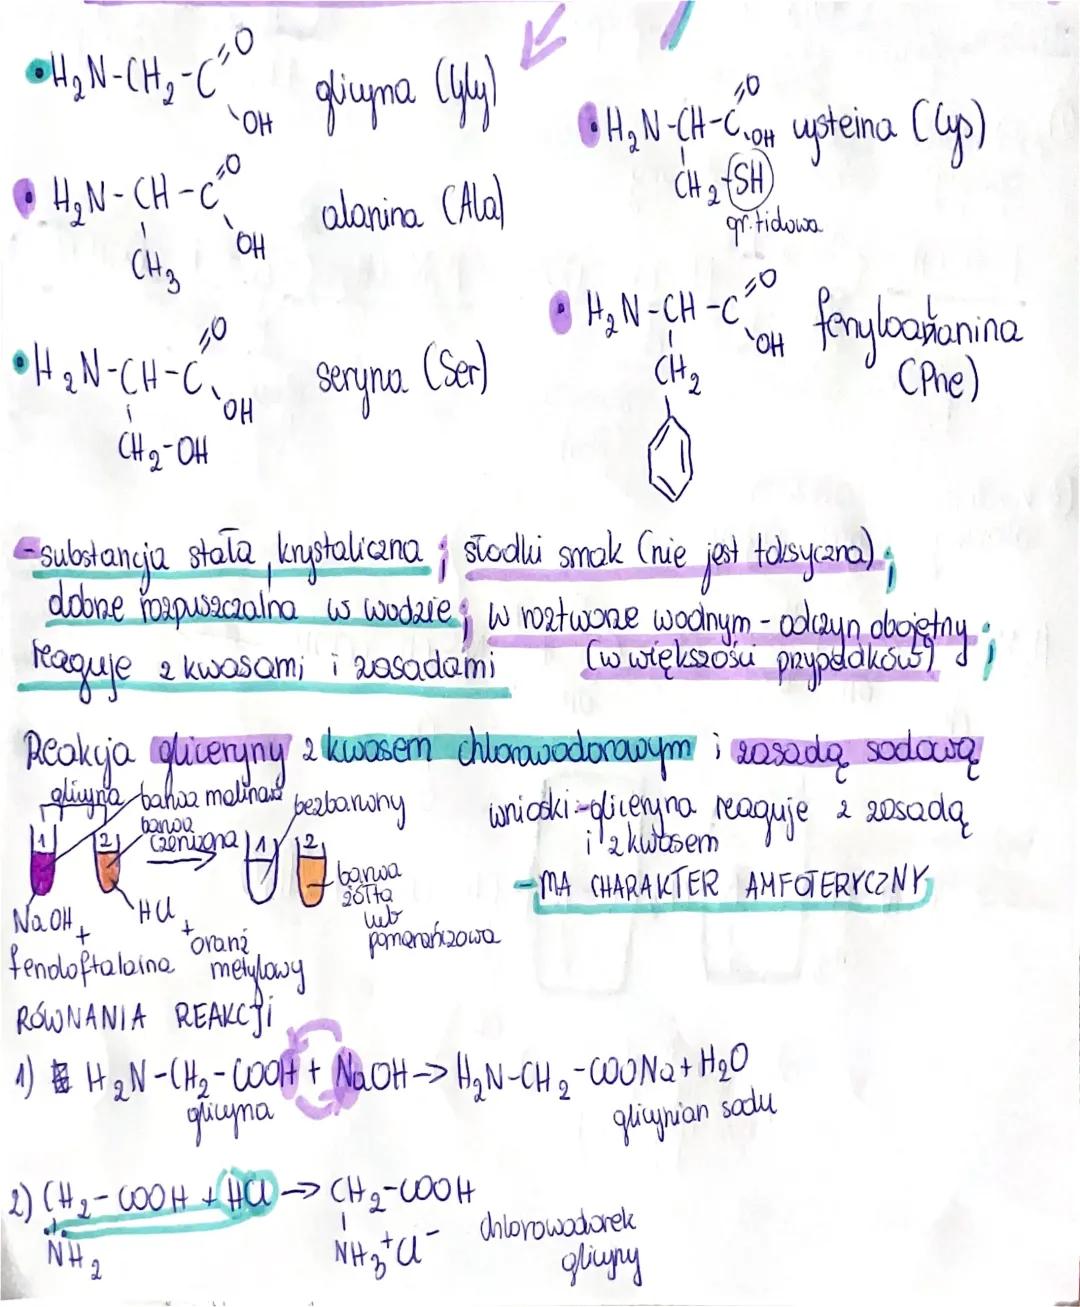 H₂N-CH₂-C=O
OH
glicyna (Gly)
H₂N-CH-C=O
OH
CH₃
alanina (Ala)
H₂N-CH-C=O
OH
CH₂-OH
seryna (Ser)
H₂N-CH-C=O
OH
CH₂-SH
cysteina (Cys)
gr. tidowa
H₂N-CH-C=O
OH
CH₂
fenyloalanina
(Phe)
-substancja stała, krystaliczna ; słodki smak (nie jest toksyczna) ;
dobrze rozpuszczalna w wodzie ; w roztworze wodnym - odczyn obojętny ;
reaguje z kwasami i zasadami (w większości przypadków)
Reakcja gliceryny z kwasem chlorowodorowym i zasadą sodową
glicyna barwa malinowa bezbarwny
barwa
czerwona
1 2 1 2
barwa
żółta
lub
pomarańczowa
NaOH +
fenoloftaleina
HCl +
oranż
metylowy
wnioski:-gliceryna reaguje z zasadą
i z kwasem
-MA CHARAKTER AMFOTERYCZNY
RÓWNANIA REAKCJI
1) H₂N-CH₂-COOH + NaOH → H₂N-CH₂-COONa + H₂O
glicyna glicynian sodu
2) CH₂-COOH + HCl → CH₂-COOH
NH₂ NH₃⁺Cl⁻ chlorowodorek
glicyny